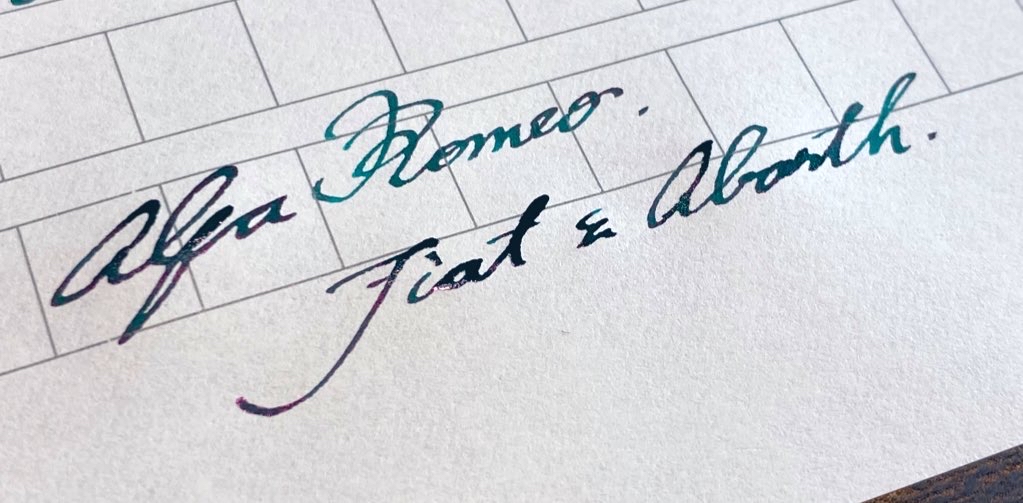 Alfa Romeo.
Fiat & Abarth.